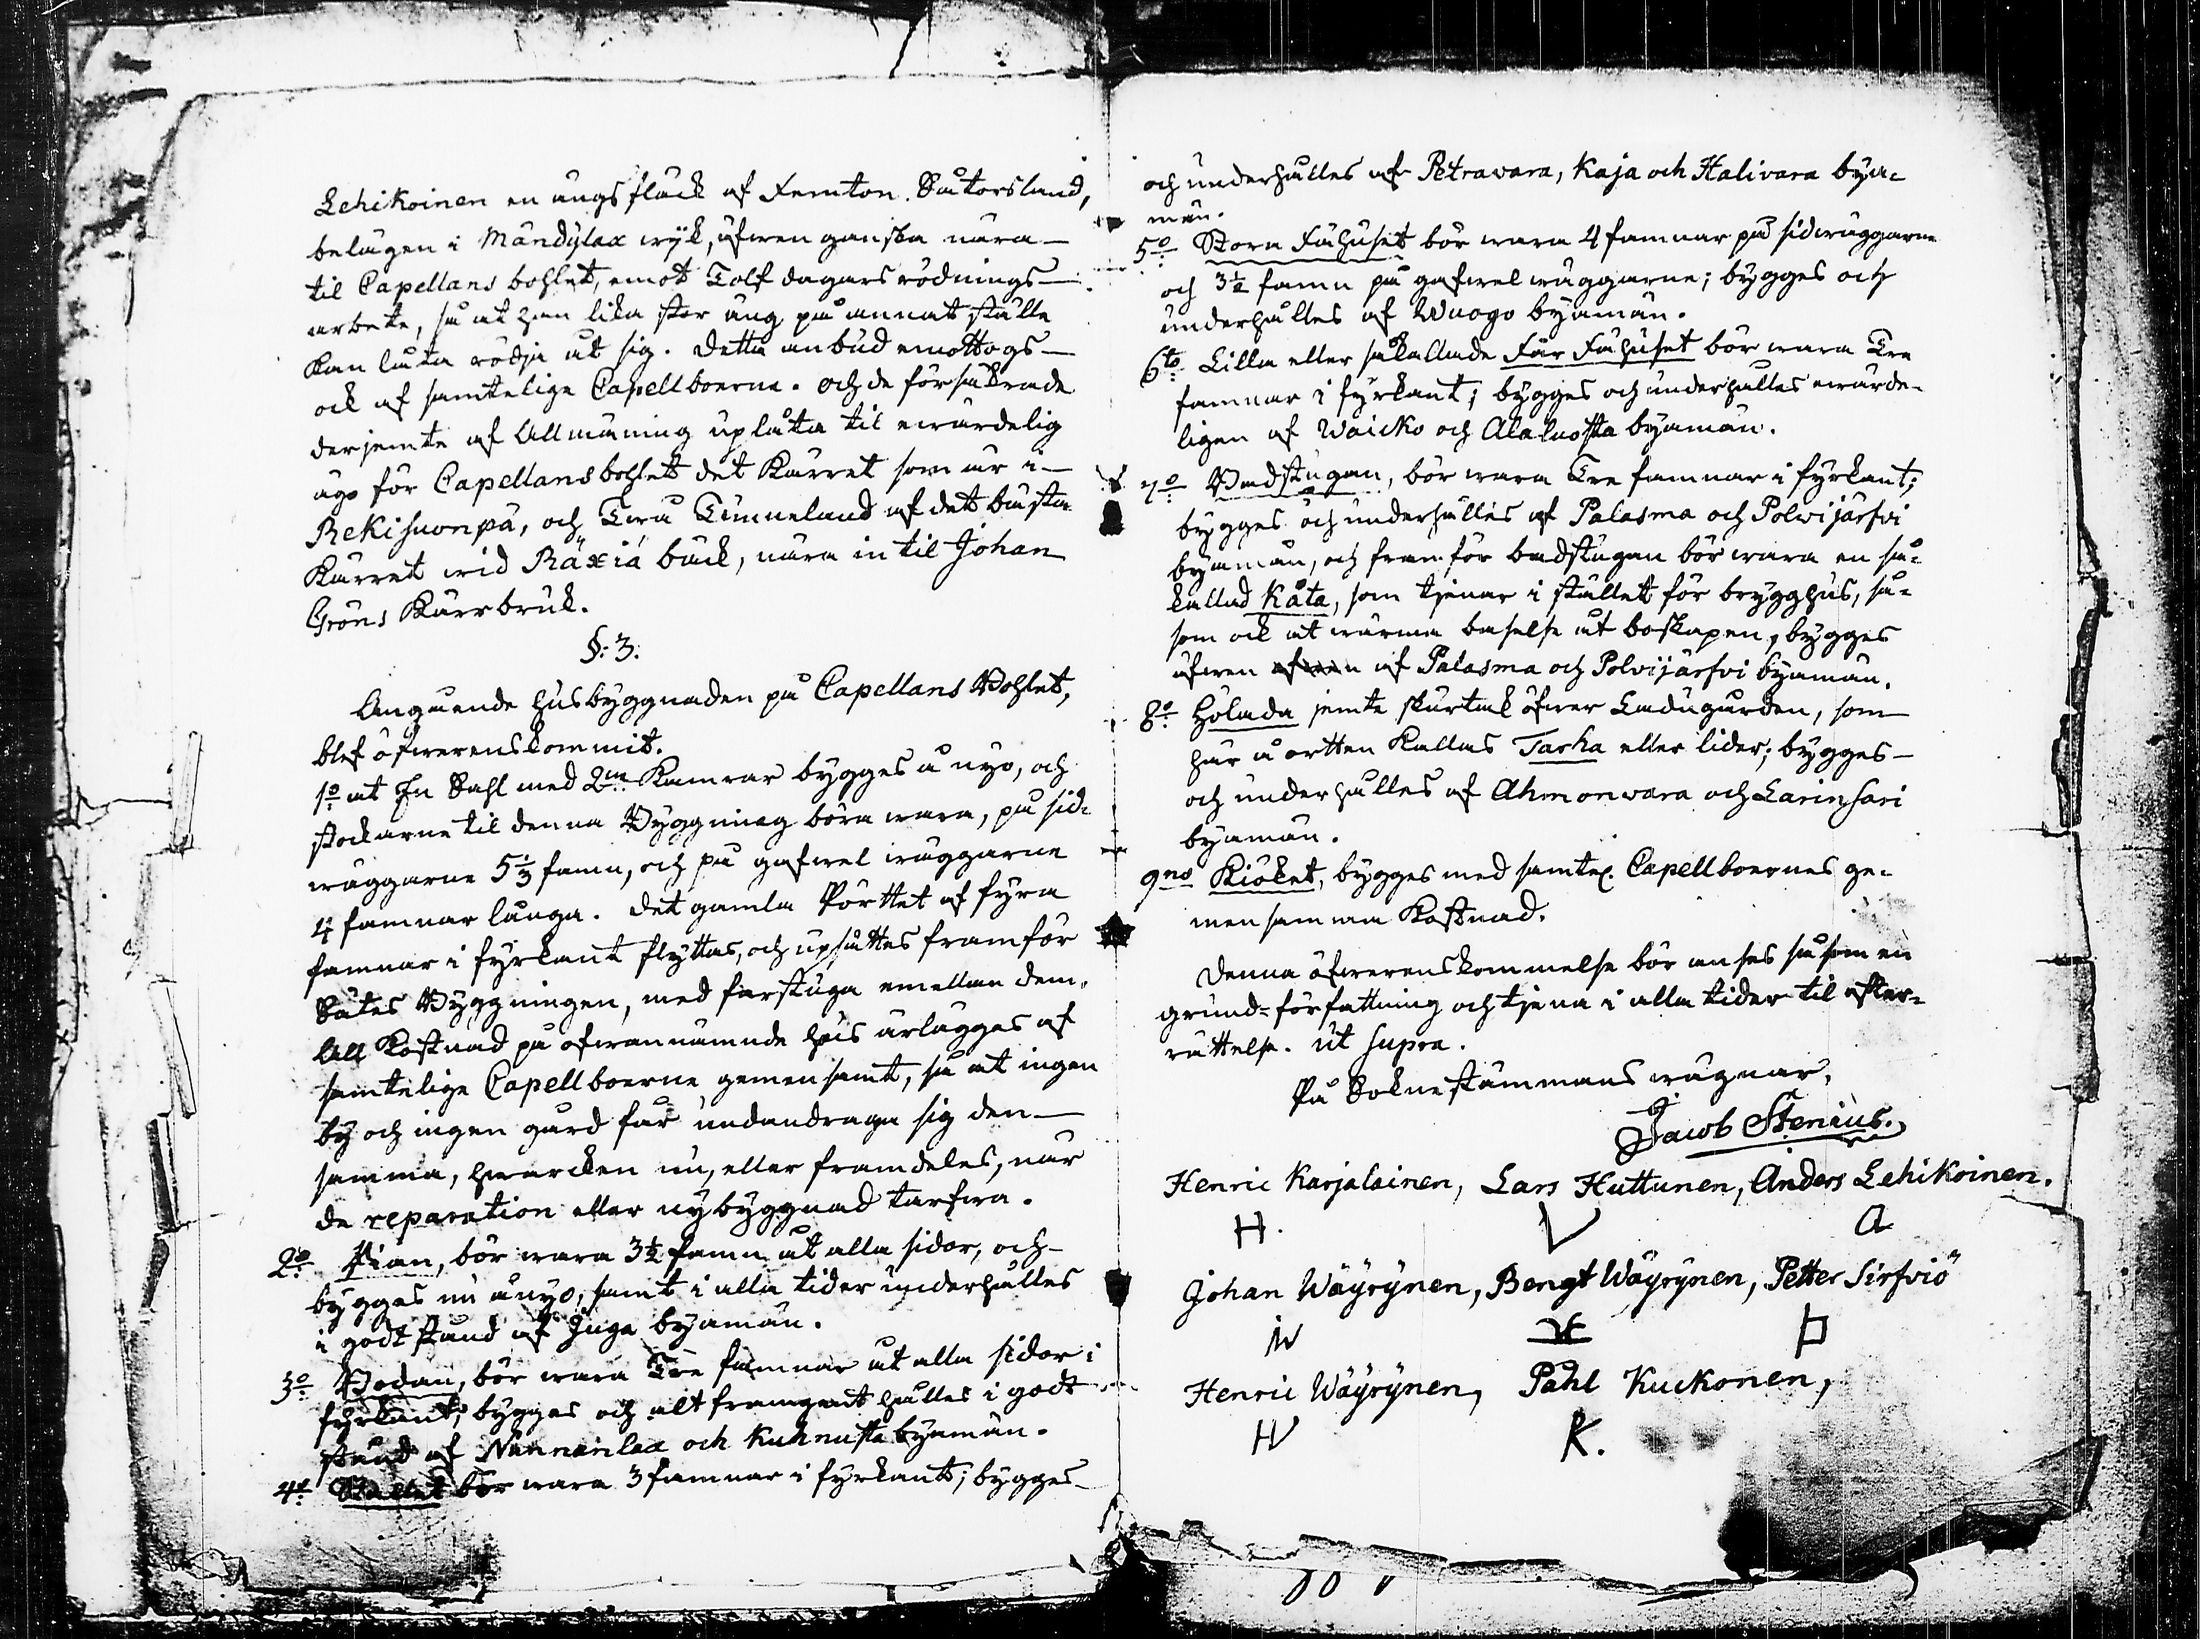 Lehikoinen en ängsfläck af Femton Såtorsland,
belägen i Mändylax wijk, äfwen ganska nära
til Capellans bohlet, emot Tolf dagars rödnings-
arbete, så at han lika stor äng på annat ställe
kan låta rödja åt sig. Detta anbud emottogs
ock af samtelige Capellboerne. Och de försäkrade
derjemte af Allmäning uplåta til ewärdelig
ägo för Capellansbohlet det Kärret som är i
Rekisuonpä, och Twå Tunneland af det bästa
Kärret wid Räxiä bäck, nära in til Johan
Gröns Kärrbruk.
§: 3.
Angående husbyggnaden på Capellans Bohlet,
blef öfwerenskommit.
1o at En Sahl med 2ne Kamrar bygges å nyo, och
stockarne til denna Byggning böra wara, på sid-
wäggarne 5 1/3 famn, och på gafwel wäggarne
4 famnar långa. Det gamla Pörttet af fyra
famnar i fyrkant flyttas, och upsättes framför
Sätes Byggningen, med farstuga emellan dem.
All Kostnad på ofwannämnde hus ärlägges af
samtelige Capellboerne gemensamt, så at ingen
by och ingen gård får undandraga sig den-
samma, hwarcken nu, eller framdeles, när
de reparation eller nybyggnad tarfwa.
2o Rian, bör wara 3½ famn åt alla sidor, och
bygges nu å nyo, samt i alla tider underhålles
i godt stånd af Juga byamän.
3o Bodan, bör wara Tre famnar åt alla sidor i
fyrkant; bygges och alt framgent hålles i godt
stånd af Nunnanlax och Kuhnusta byamän.
4o Stallet bör wara 3 famnar i fyrkant; bygges
och underhålles af Petravara, Kaja och Halivara bya-
män.
5o Stora Fähuset bör wara 4 famnar på sidwäggarne
och 3½ famn på gafwel wäggarne; bygges och
underhålles af Wuogo byamän.
6to Lilla eller såkallade Får Fähuset bör wara Tre
famnar i fyrkant; bygges och underhålles ewärde-
ligen af Waicko och Alaluosta byamän.
7o Badstugan, bör wara Tre famnar i fyrkant;
bygges och underhålles af Palasma och Polwijärfvi
byamän, och framför badstugan bör wara en så-
kallad Kåta, som tjenar i stället för brygghus, så-
som ock at wärma baselse åt boskapen, bygges
äfwen af Palasma och Polvijärfvi byamän.
8o Hölada jemte skurtak öfwer Ladugården, som
här å ortten Kallas Tarha eller lider; bygges
och underhålles af Ahmonwara och Larinsari
byamän.
9no Kiöket, bygges med samtel. Capellboernes ge-
mensamma Kostnad.
Denna öfwerenskommelse bör anses såsom en
grund-författning och tjena i alla tider til efter-
rättelse. Ut supra.
På Soknestämmans wägnar,
Jacob Stenius.
Henric Karjalainen, Lars Huttunen, Anders Lehikoinen.
H. L A
Johan Wäyrynen, Bengt Wäyrynen, Petter Sirfviö
Henric Wäyrynen, Påhl Kuckonen,
K.